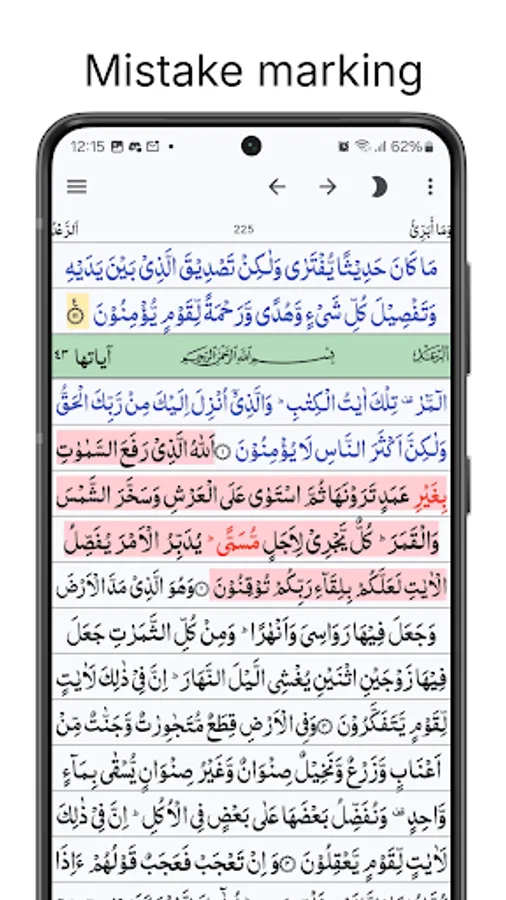 Mistake marking
12:15 62%
اَلرَّعْد 225 وَمَا أُبَرِّئُ
مَا كَانَ حَدِيْثًا يُّفْتَرٰى وَلٰكِنْ تَصْدِيْقَ الَّذِيْ بَيْنَ يَدَيْهِ
وَتَفْصِيْلَ كُلِّ شَيْءٍ وَّهُدًى وَّرَحْمَةً لِّقَوْمٍ يُّؤْمِنُوْنَ
اَلرَّعْد بِسْمِ اللهِ الرَّحْمٰنِ الرَّحِيْمِ آياتها ٤٣
الٓمّٓرٰ ۗ تِلْكَ اٰيٰتُ الْكِتٰبِ ؕ وَالَّذِيْٓ اُنْزِلَ اِلَيْكَ مِنْ رَّبِّكَ الْحَقُّ
وَلٰكِنَّ اَكْثَرَ النَّاسِ لَا يُؤْمِنُوْنَ ۝۱ اَللهُ الَّذِيْ رَفَعَ السَّمٰوٰتِ
بِغَيْرِ عَمَدٍ تَرَوْنَهَا ثُمَّ اسْتَوٰى عَلَى الْعَرْشِ وَسَخَّرَ الشَّمْسَ
وَالْقَمَرَ ؕ كُلٌّ يَّجْرِيْ لِاَجَلٍ مُّسَمًّى ؕ يُدَبِّرُ الْاَمْرَ يُفَصِّلُ
الْاٰيٰتِ لَعَلَّكُمْ بِلِقَآءِ رَبِّكُمْ تُوْقِنُوْنَ ۝۲ وَهُوَ الَّذِيْ مَدَّ الْاَرْضَ
وَجَعَلَ فِيْهَا رَوَاسِيَ وَاَنْهٰرًا ؕ وَمِنْ كُلِّ الثَّمَرٰتِ جَعَلَ
فِيْهَا زَوْجَيْنِ اثْنَيْنِ يُغْشِي الَّيْلَ النَّهَارَ ؕ اِنَّ فِيْ ذٰلِكَ لَاٰيٰتٍ
لِّقَوْمٍ يَّتَفَكَّرُوْنَ ۝۳ وَفِي الْاَرْضِ قِطَعٌ مُّتَجٰوِرٰتٌ وَّجَنّٰتٌ مِّنْ
اَعْنَابٍ وَّزَرْعٌ وَّنَخِيْلٌ صِنْوَانٌ وَّغَيْرُ صِنْوَانٍ يُّسْقٰى بِمَآءٍ
وَّاحِدٍ ۗ وَنُفَضِّلُ بَعْضَهَا عَلٰى بَعْضٍ فِي الْاُكُلِ ؕ اِنَّ فِيْ ذٰلِكَ
لَاٰيٰتٍ لِّقَوْمٍ يَّعْقِلُوْنَ ۝۴ وَاِنْ تَعْجَبْ فَعَجَبٌ قَوْلُهُمْ ءَاِذَا